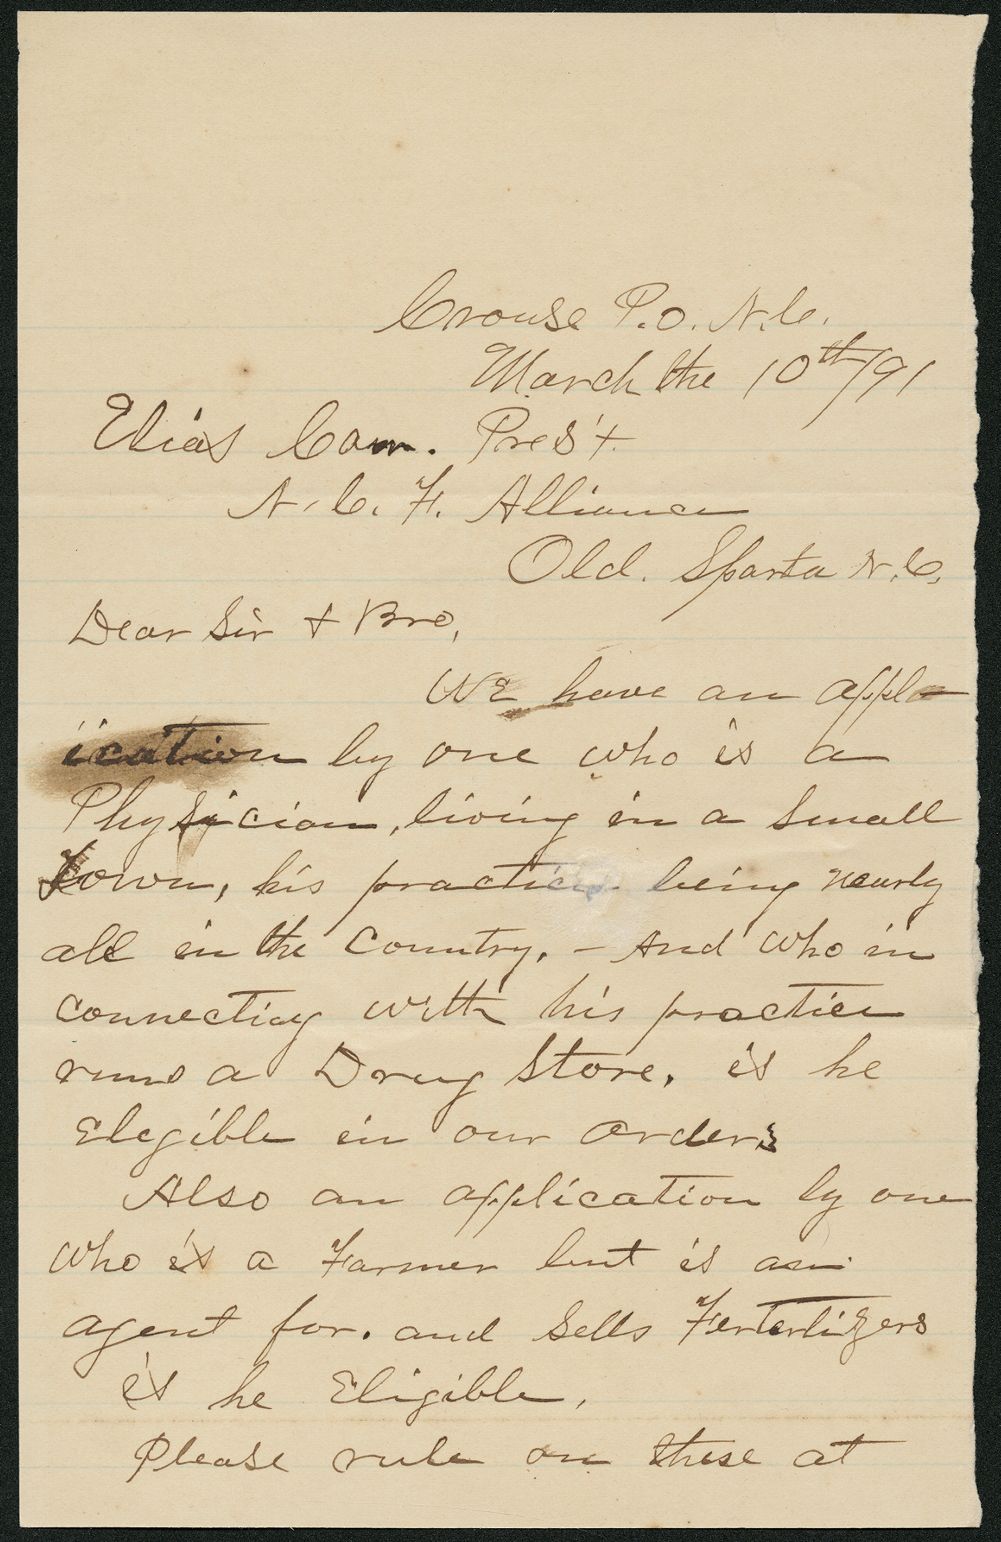 Crouse P.O. N.C.
March the 10th/91
Elias Carr. Pres't.
N.C. F. Alliance
Old. Sparta N.C.
Dear Sir & Bro,
We have an appl-
ication by one who is a
Physician, living in a small
Town, his practice being nearly
all in the Country. - And who in
connecting with his practice
runs a Drug Store. is he
Elegible in our order.
Also an application by one
who is a Farmer but is an
agent for. and Sells Ferterlizers
is he Eligible.
Please rule on these at